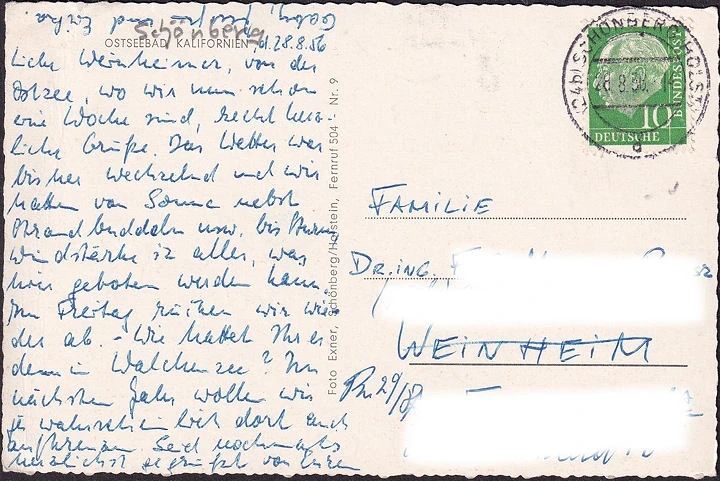 Schönberg
OSTSEEBAD KALIFORNIEN, d. 28.8.56
Liebe Weinheimer, von der
Ostsee, wo wir nun schon
eine Woche sind, recht herz-
liche Grüße. Das Wetter war
bisher wechselnd und wir
hatten von Sonne nebst
Strandbuddeln usw. bis Sturm
Windstärke 12 alles, was
hier geboten werden kann.
Am Freitag rücken wir wie-
der ab. - Wie hattet Ihr es
denn in Walchensee? Im
nächsten Jahr wollen wir
ja wahrscheinlich dort auch
Seid nochmals
herzlichst gegrüßt von Euren
und Erika
Foto Exner, Schönberg/Holstein, Fernruf 504 Nr. 9
(24b) SCHÖNBERG (HOLST)
28.8.56
a
10
DEUTSCHE
BUNDESPOST
FAMILIE
DR. ING.
WEINHEIM